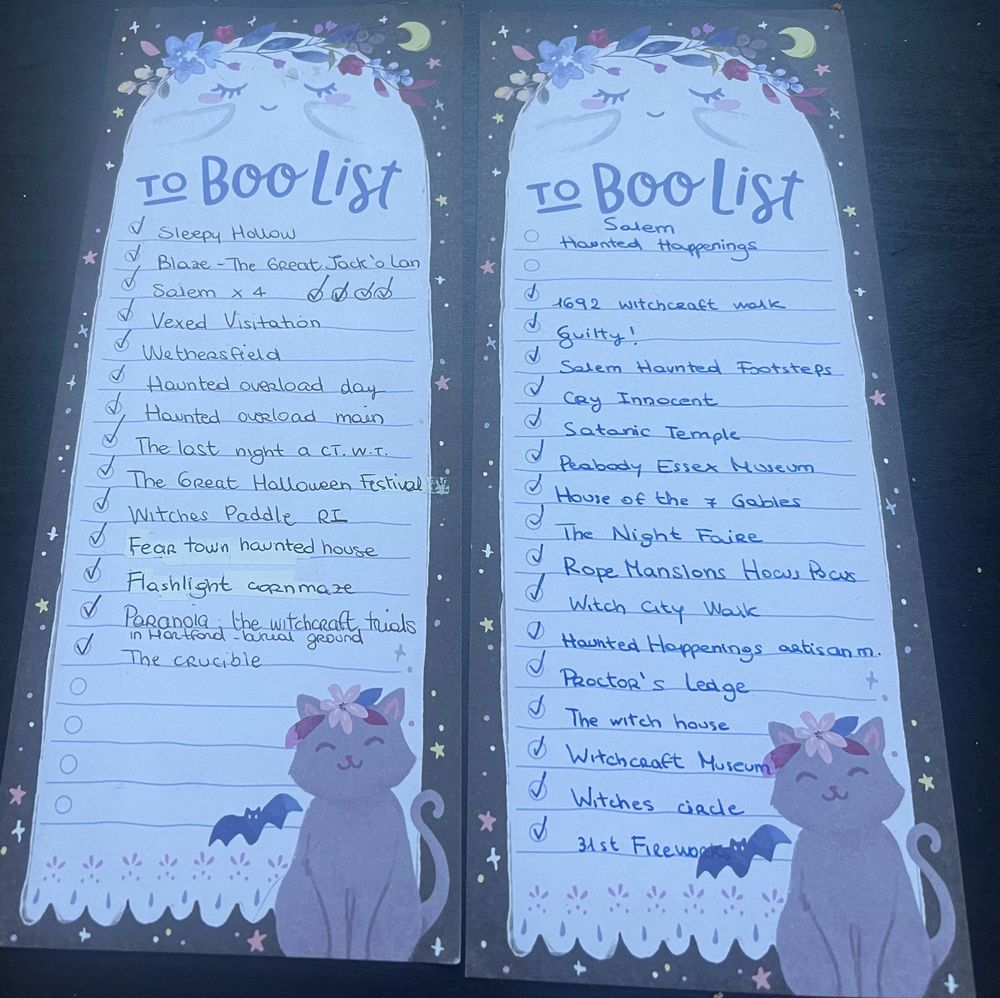 TO BOO LIST
Sleepy Hollow
Blaze - The Great Jack'o Lan
Salem x 4
Vexed Visitation
Wethersfield
Haunted overload day
Haunted overload main
The last night a CT. W.T.
The Great Halloween Festival
Witches Paddle RI
Fear town haunted house
Flashlight cornmaze
Paranoia, the witchcraft trials
in Hartford - burial ground
The crucible
TO BOO LIST
Salem
Haunted Happenings
1692 witchcraft walk
Guilty!
Salem Haunted Footsteps
Cry Innocent
Satanic Temple
Peabody Essex Museum
House of the 7 Gables
The Night Faire
Rope Mansions Hocus Pocus
Witch City Walk
Haunted Happenings artisan m.
Proctor's Ledge
The witch house
Witchcraft Museum
Witches circle
31st Fireworks